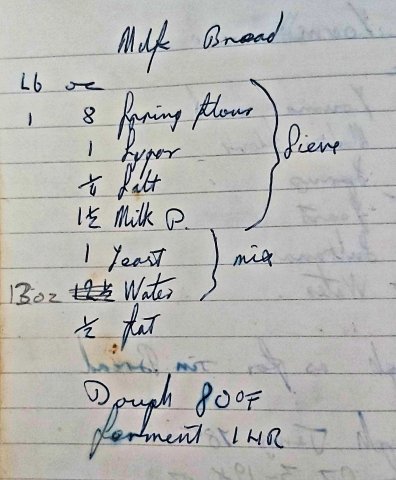 Milk Bread
Lb oz
1 8 Spring flour
1 Sugar
Salt
1 1/2 Milk P.
Sieve
1 Yeast
13oz Water
mix
1/2 fat
Dough 80°F
ferment 1 HR